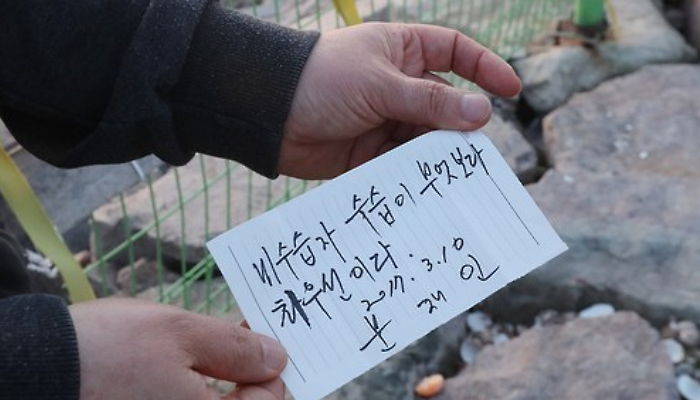 미수습자 수습이 무엇보다
최우선이다.
2017. 3. 10
문 재 인